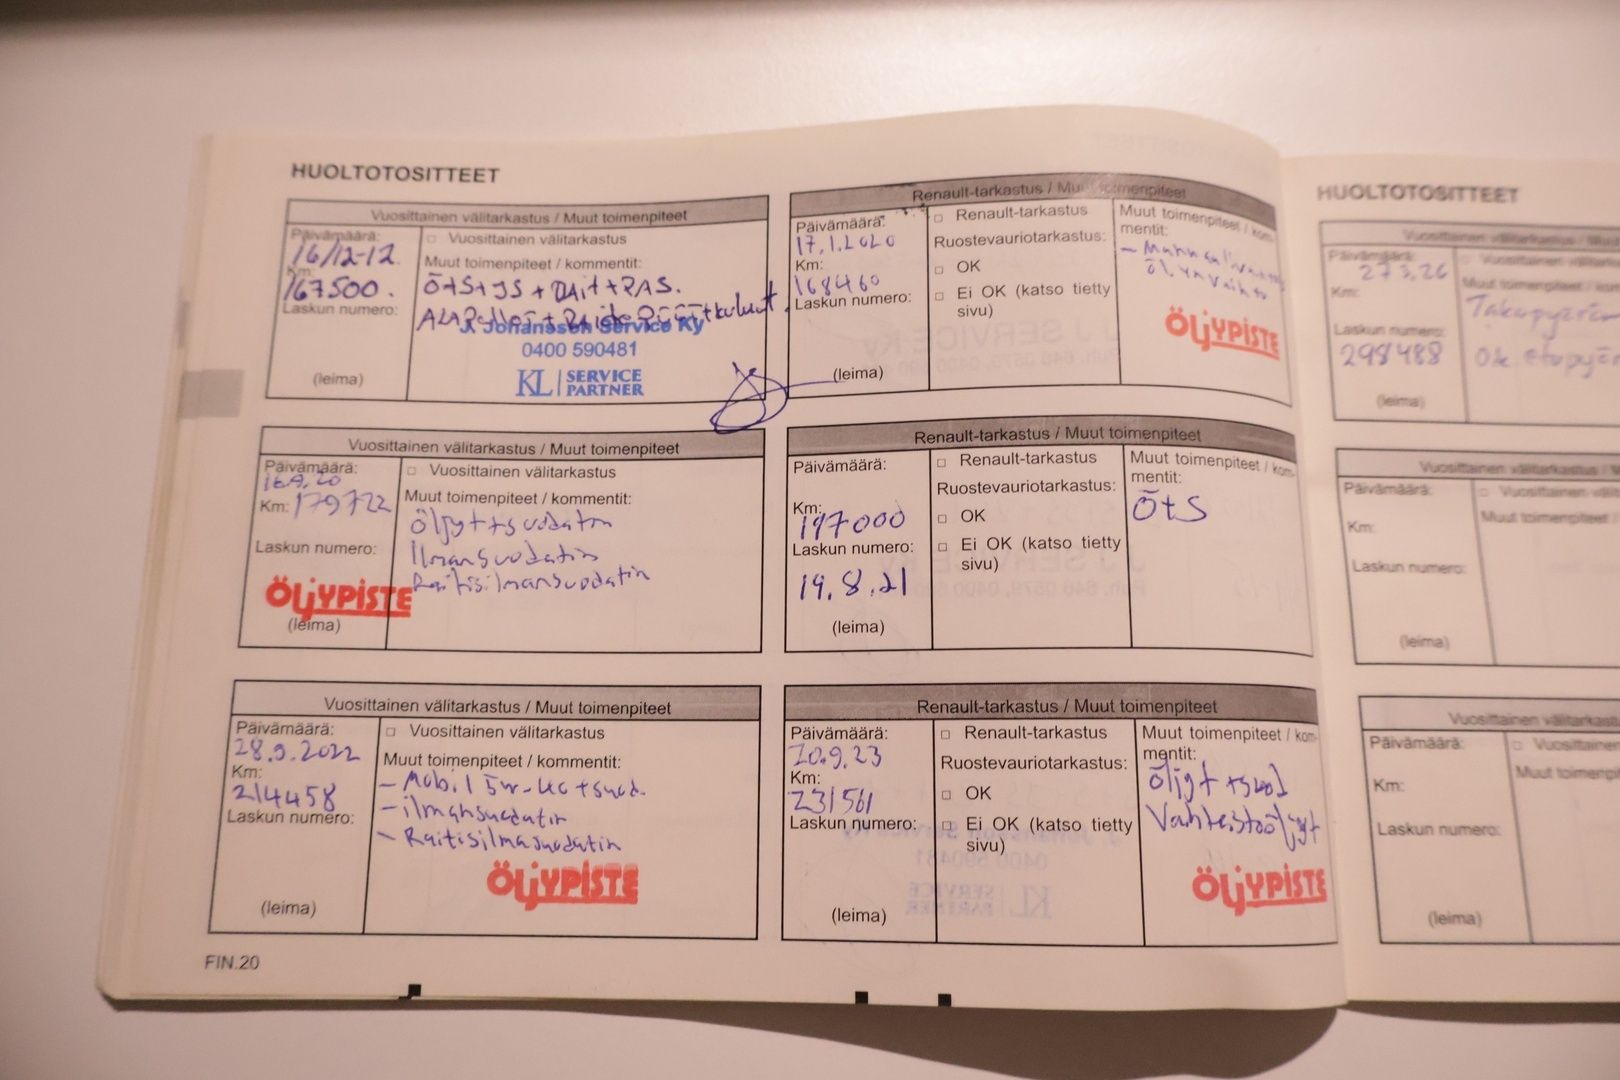 HUOLTOTOSITTEET
Vuosittainen välitarkastus / Muut toimenpiteet
Päivämäärä:
16/12-12.
Km:
167500.
Laskun numero:
(leima)
□ Vuosittainen välitarkastus
Muut toimenpiteet / kommentit:
ÖtS+JS + RAit+RAS.
J. Johansson Service Ky
0400 590481
KL SERVICE PARTNER
Renault-tarkastus / Muut toimenpiteet
Päivämäärä:
17.1.2020
Km:
168460
Laskun numero:
(leima)
□ Renault-tarkastus
Ruostevauriotarkastus:
□ OK
□ Ei OK (katso tietty
sivu)
Muut toimenpiteet / kom-
mentit:
öljynvaihto
ÖLJYPISTE
Vuosittainen välitarkastus / Muut toimenpiteet
Päivämäärä:
16.9.20
Km: 179722
Laskun numero:
ÖLJYPISTE
(leima)
□ Vuosittainen välitarkastus
Muut toimenpiteet / kommentit:
öljyt+suodatin
Ilmansuodatin
Raitisilmansuodatin
Renault-tarkastus / Muut toimenpiteet
Päivämäärä:
Km:
197000
Laskun numero:
19.8.21
(leima)
□ Renault-tarkastus
Ruostevauriotarkastus:
□ OK
□ Ei OK (katso tietty
sivu)
Muut toimenpiteet / kom-
mentit:
ÖtS
Vuosittainen välitarkastus / Muut toimenpiteet
Päivämäärä:
28.9.2022
Km:
214458
Laskun numero:
(leima)
□ Vuosittainen välitarkastus
Muut toimenpiteet / kommentit:
- Mobil 5w-40 +suod.
- ilmansuodatin
- Raitisilmasuodatin
ÖLJYPISTE
Renault-tarkastus / Muut toimenpiteet
Päivämäärä:
20.9.23
Km:
231561
Laskun numero:
(leima)
□ Renault-tarkastus
Ruostevauriotarkastus:
□ OK
□ Ei OK (katso tietty
sivu)
Muut toimenpiteet / kom-
mentit:
öljyt +suod
Vaihteistoöljyt
ÖLJYPISTE
FIN.20
HUOLTOTOSITTEET
Vuosittainen välitarkastus
Päivämäärä:
27.3.26
Km:
Laskun numero:
298488
(leima)
□ Vuosittainen
Muut toimenpiteet / kom
Vuosittainen välitarkastus /
Päivämäärä:
Km:
Laskun numero:
(leima)
□ Vuosittainen
Muut toimenpiteet /
Vuosittainen välitarkastus
Päivämäärä:
Km:
Laskun numero:
(leima)
□ Vuosittainen
Muut toimenpi